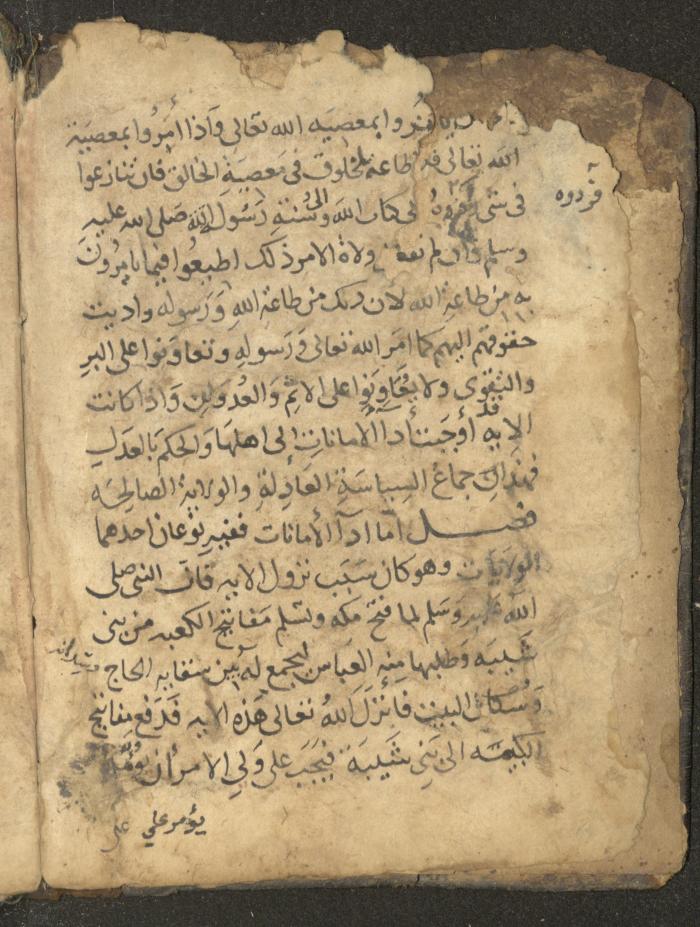 يامروا بمعصيه الله تعالى واذا أمروا بمعصية
الله تعالى فلا طاعة لمخلوق فى معصية الخالق فان تنازعوا
فى شى ردوه الى كتاب الله والى سنة رسول الله صلى الله عليه
وسلم وان لم تفعل ولاة الامر ذلك اطيعوا فيما يامرون
به من طاعة الله لان ذلك من طاعة الله ورسوله واديت
حقوقهم اليهم كما امر الله تعالى ورسوله وتعاونوا على البر
والتقوى ولا تعاونوا على الاثم والعدوان واذا كانت
الايه قد أوجبت أدآ الامانات إلى اهلها والحكم بالعدل
فهذان جماع السياسة العادلة والولاية الصالحه
فصل أما ادآ الأمانات ففيه نوعان احدهما
الولايات وهو كان سبب نزول الايه فان النبى صلى
الله عليه وسلم لما فتح مكه وتسلم مفاتيح الكعبه من بنى
شيبه وطلبها منه العباس ليجمع له بين سقايه الحاج
وسكان البيت فانزل الله تعالى هذه الايه فدفع مفاتيح
الكعبه الى بنى شيبة فيجب على ولي الامر أن
يؤمر علي على
فردوه